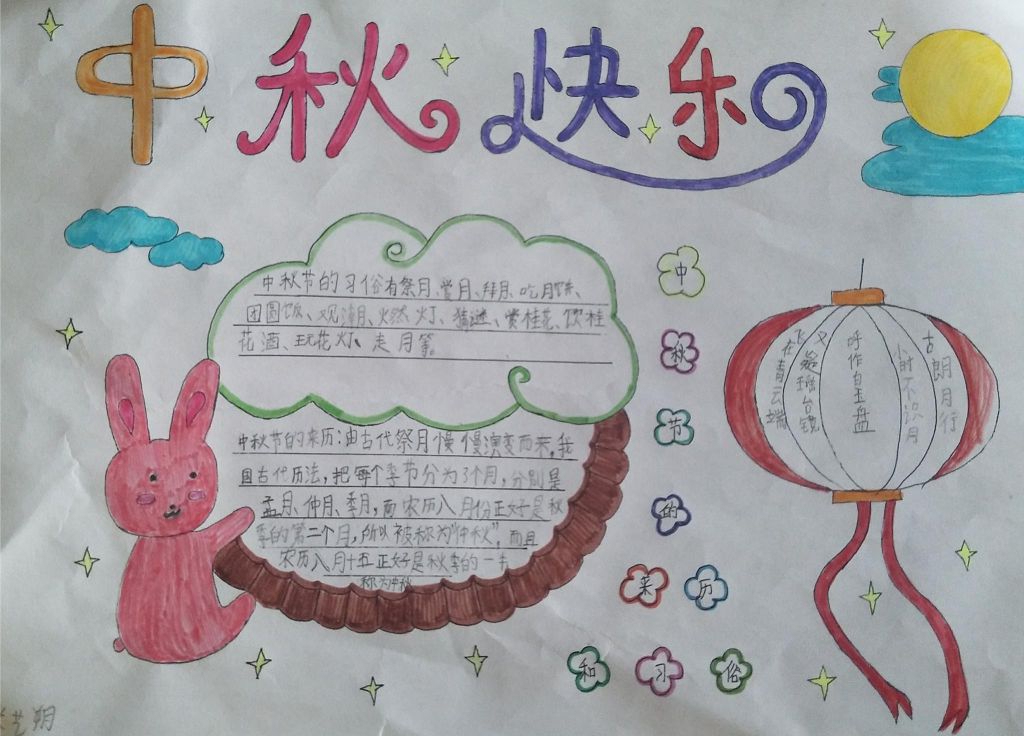 中秋快乐
中秋节的习俗有祭月、赏月、拜月、吃月饼、
团圆饭、观潮、燃灯、猜谜、赏桂花、饮桂
花酒、玩花灯、走月等。
中秋节的来历:由古代祭月慢慢演变而来,我
国古代历法,把每个季节分为3个月,分别是
孟月、仲月、季月,而农历八月份正好是秋
季的第二个月,所以被称为“仲秋”,而且
农历八月十五正好是秋季的一半
称为中秋
中
秋
节
的
来历
和习俗
古朗月行
小时不识月
呼作白玉盘
又疑瑶台镜
飞在青云端
艺朔